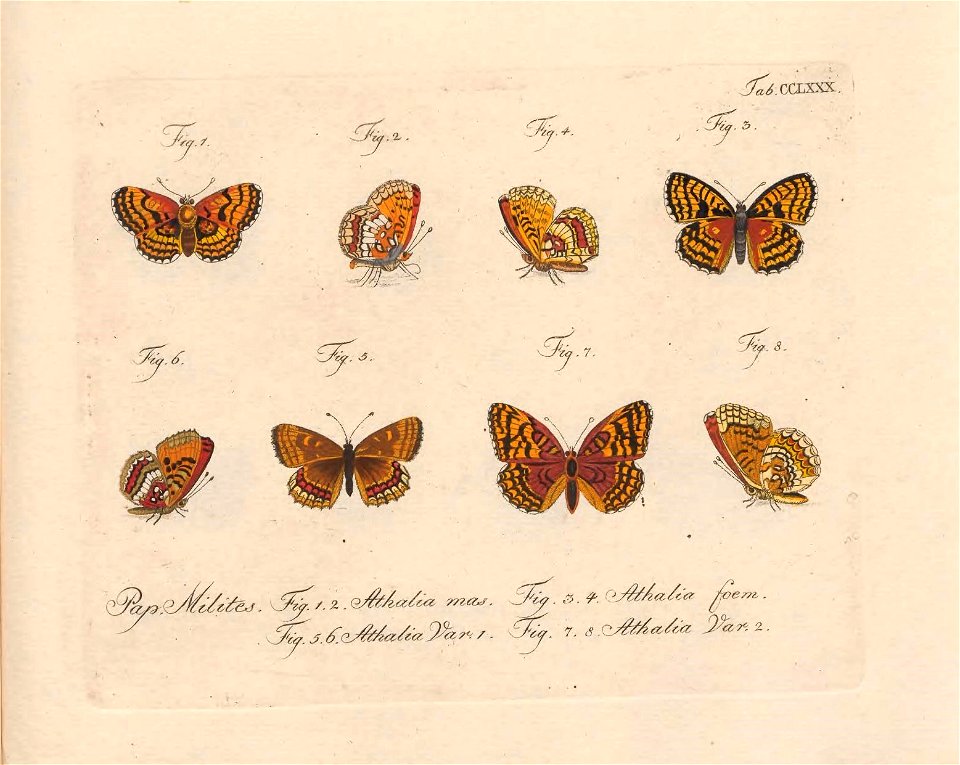 Tab. CCLXXX.
Fig. 1. Fig. 2. Fig. 4. Fig. 3.
Fig. 6. Fig. 5. Fig. 7. Fig. 8.
Pap. Milites. Fig. 1. 2. Athalia mas. Fig. 3. 4. Athalia foem.
Fig. 5. 6. Athalia Var. 1. Fig. 7. 8. Athalia Var. 2.